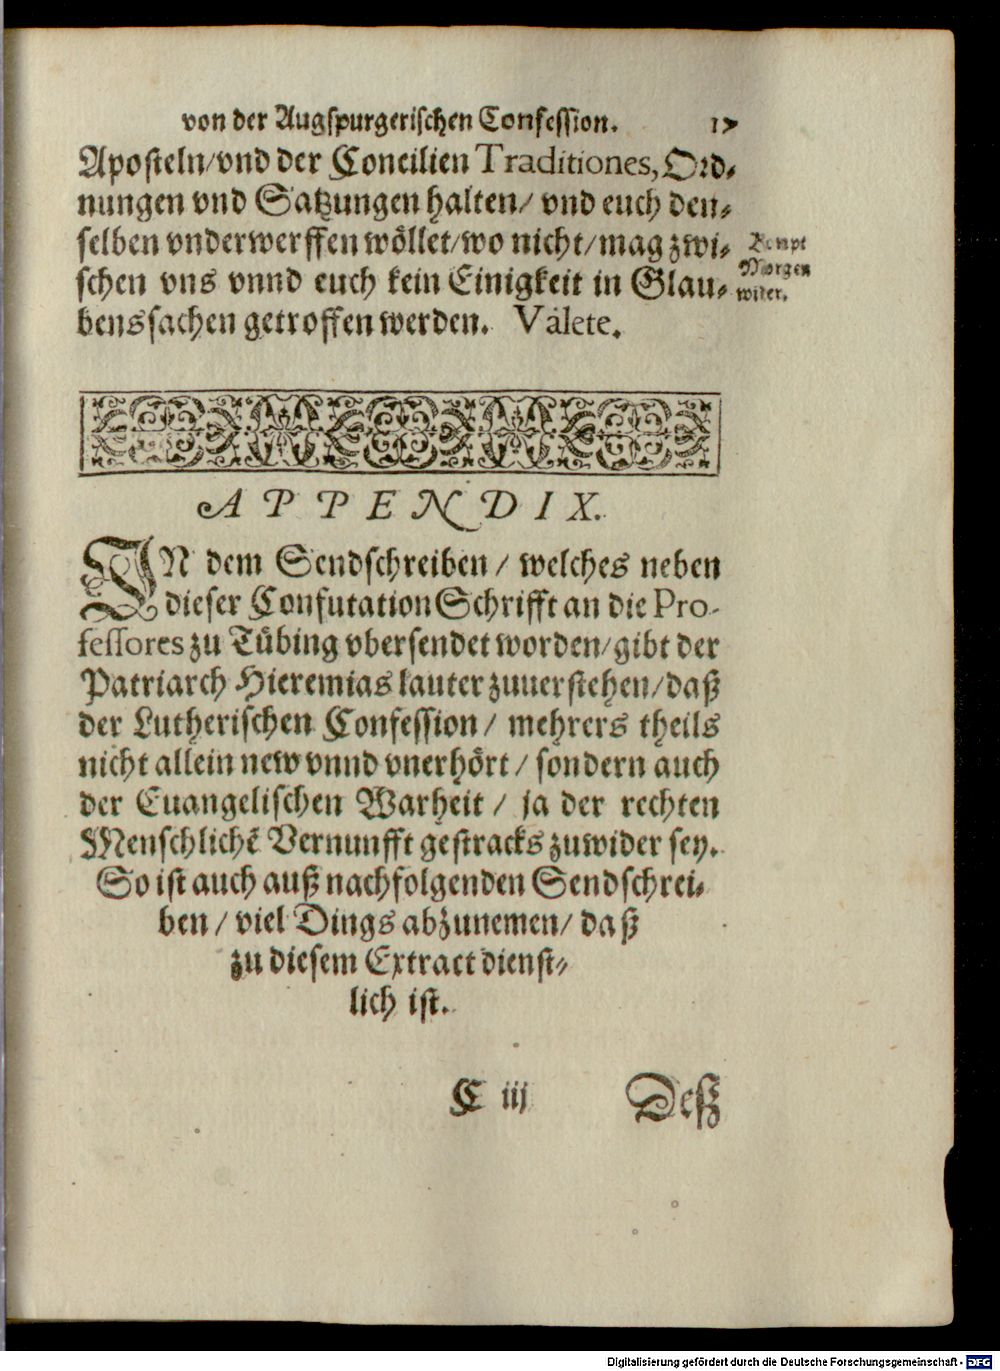 von der Augspurgerischen Confession. 17
Aposteln/vnd der Concilien Traditiones, Ord⸗
nungen vnd Satzungen halten/ vnd euch den⸗
selben vnderwerffen wöllet/wo nicht/mag zwi⸗
schen vns vnnd euch kein Einigkeit in Glau⸗
benssachen getroffen werden. Valete.
Kompt
Morgen
wider.
APPENDIX.
IN dem Sendschreiben / welches neben
dieser Confutation Schrifft an die Pro-
fessores zu Tübing vbersendet worden/gibt der
Patriarch Hieremias lauter zuuerstehen/daß
der Lutherischen Confession / mehrers theils
nicht allein new vnnd vnerhört / sondern auch
der Euangelischen Warheit / ja der rechten
Menschlichẽ Vernunfft gestracks zuwider sey.
So ist auch auß nachfolgenden Sendschrei⸗
ben / viel Dings abzunemen/ daß
zu diesem Extract dienst⸗
lich ist.
C iij Deß
Digitalisierung gefördert durch die Deutsche Forschungsgemeinschaft - DFG